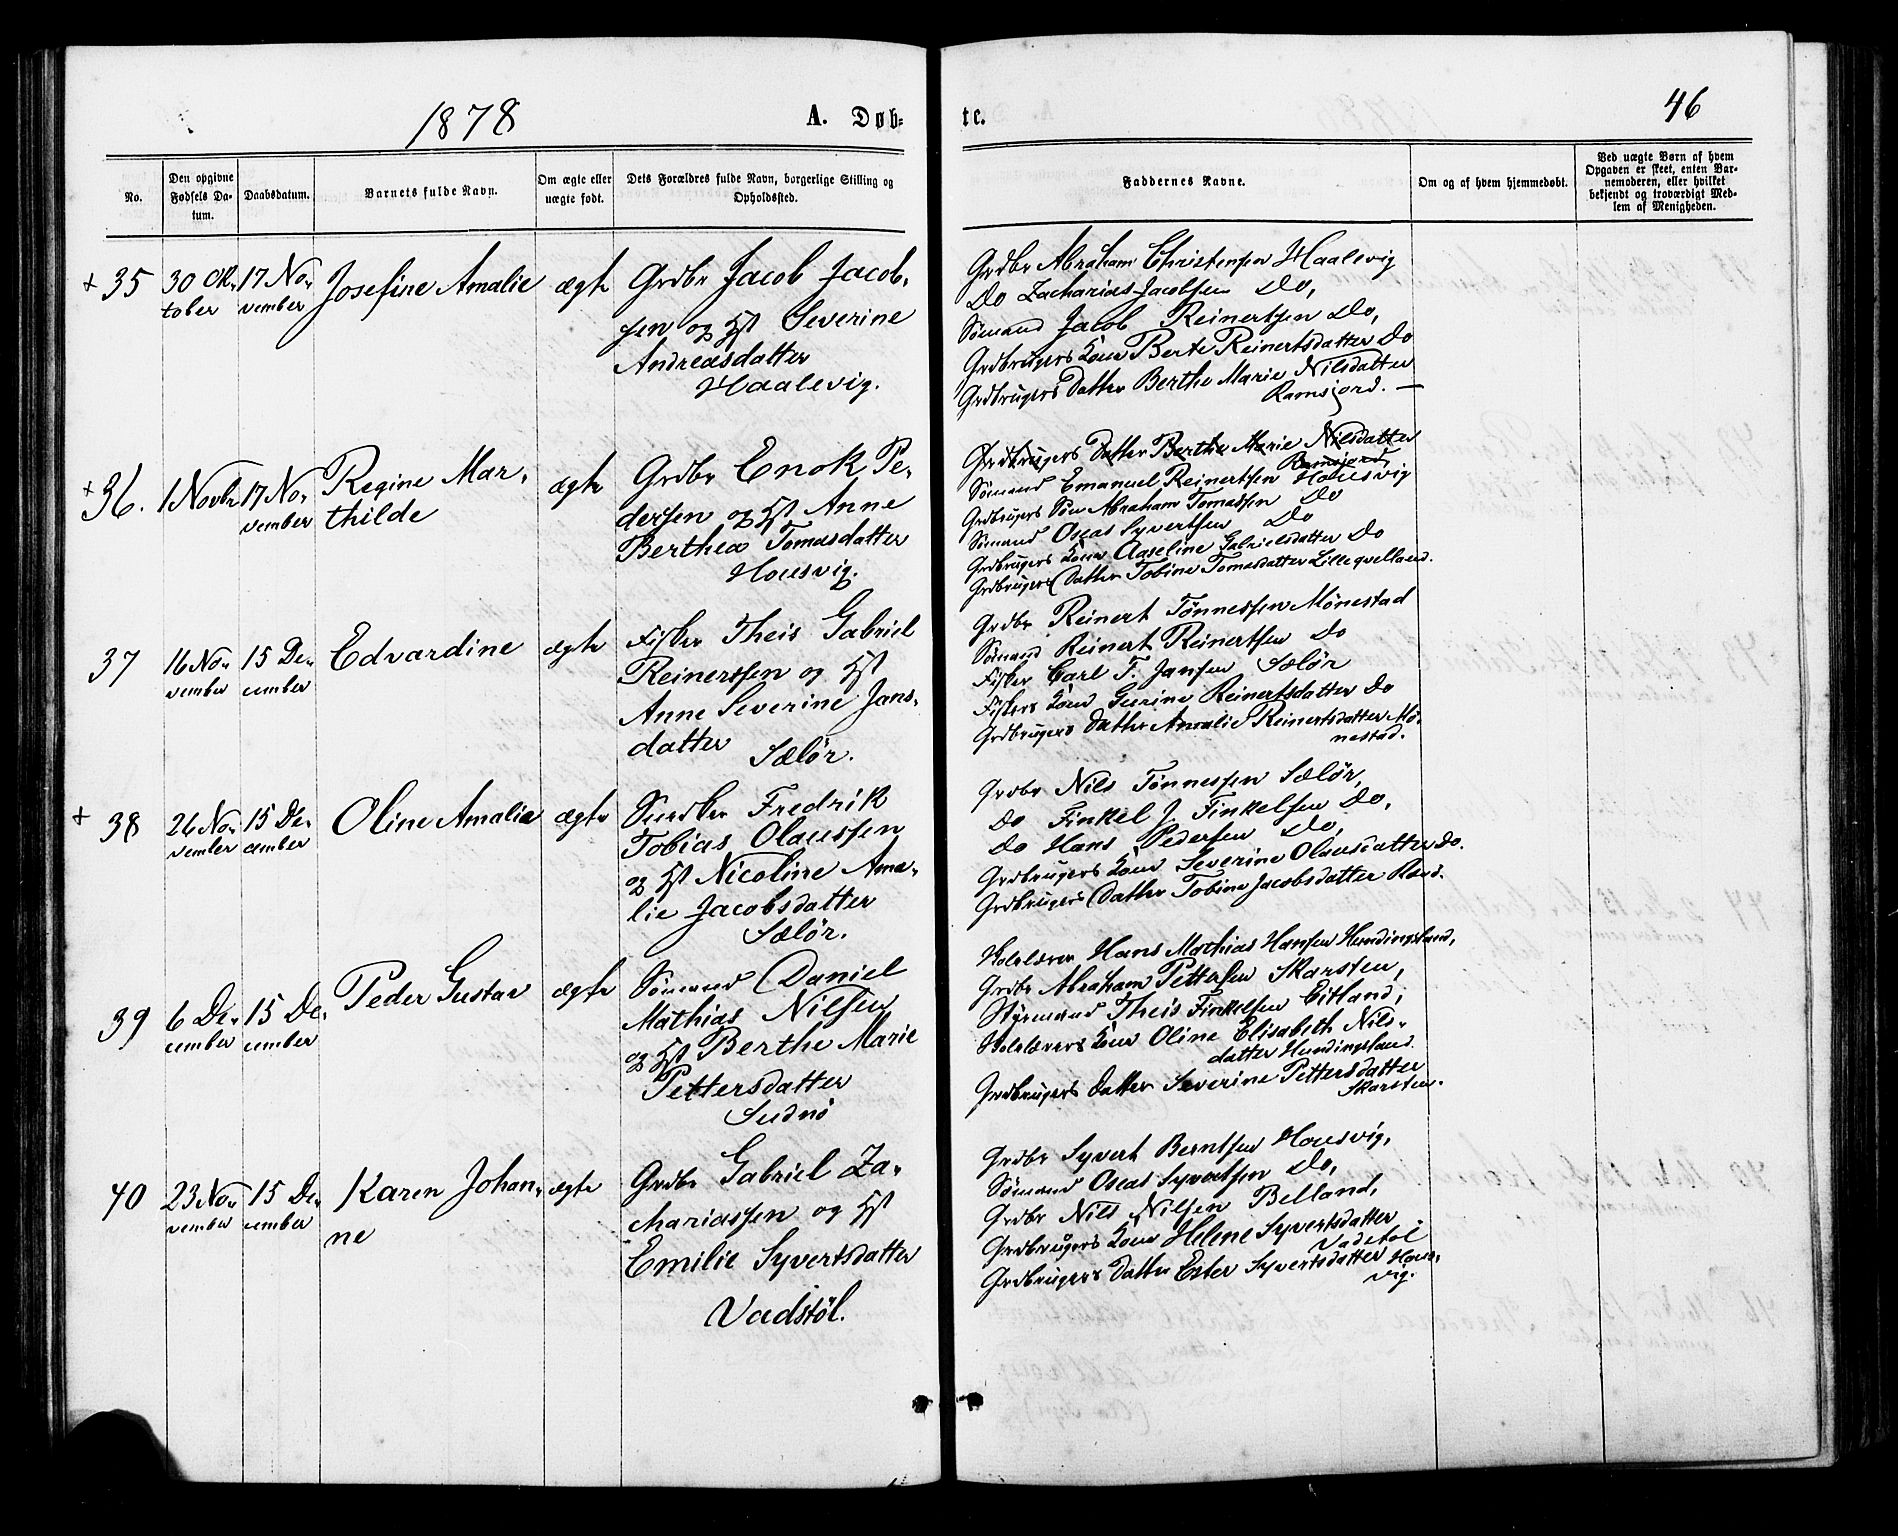 1878
A. Døb-
te.
46
No.
Den opgivne Fødsels Da-tum.
Daabsdatum.
Barnets fulde Navn.
Om ægte eller uægte født.
Dets Forældres fulde Navn, borgerlige Stilling og Opholdssted.
Faddernes Navne.
Om og af hvem hjemmedøbt.
Ved uægte Børn af hvem
Opgaven er skeet, enten Bar-
nemoderen, eller hvilket
bekjendt og troværdigt Med-
lem af Menigheden.
+ 35
30 Ok-
tober
17 No-
vember
Josefine Amalie
ægte
Grdbr Jacob Jacob-
sen og Hst Severine
Andreasdatter
Haalevig.
Grdbr Abraham Christensen Haalevig
Do Zacharias Jacobsen Do,
Sømand Jacob Reinertsen Do,
Grdbrugers Kone Berte Reinertsdatter Do
Grdbrugers Datter Berthe Marie Nilsdatter
Ramsjord. —
+ 36.
1 Novbr
17 No-
vember
Regine Mar-
thilde
ægte
Grdbr Enok Pe-
dersen og Hst Anne
Berthea Tomasdatter
Housvig.
Grdbrugers Datter Berthe Marie Nilsdatter
Ramsjord,
Sømand Emanuel Reinertsen Housvig
Grdbrugers Søn Abraham Tomassen Do
Sømand Oseas Syvertsen Do
Grdbrugers Kone Aaseline Gabrielsdatter Do
Grdbrugers Datter Tobine Tomasdatter Lilleqvelland.
37
16 No-
vember
15 De-
cember
Edvardine
ægte
Fisker Theis Gabriel
Reinertsen og Hst
Anne Severine Jans-
datter
Sælør.
Grdbr Reinert Tønnessen Mønestad
Sømand Reinert Reinertsen Do
Fisker Carl T. Jansen Sælør
Fiskers Kone Gurine Reinertsdatter Do
Grdbrugers Datter Amalie Reinertsdatter Mø-
nestad.
+ 38
26 No-
vember
15 De-
cember
Oline Amalie
ægte
Fredrik
Tobias Olaussen
og Hst Nicoline Ama-
lie Jacobsdatter
Sælør.
Grdbr Nils Tønnessen Sælør,
Do Finkel J. Finkelsen Do,
Do Hans Pedersen Do,
Grdbrugers Kone Severine Olausdatter Do.
Grdbrugers Datter Tobine Jacobsdatter
39
6 De-
cember
15 De-
cember
Peder Gustav
ægte
Sømand Daniel
Mathias Nilsen
og Hst Berthe Marie
Pettersdatter
Sudnø
Skolelærer Hans Mathias Hansen Hundingsland,
Grdbr Abraham Pettersen Skarsten,
Styrmand Theis Finkelsen Eitland,
Skolelærers Kone Oline Elisabeth Nils-
datter Hundingsland.
Grdbrugers Datter Severine Pettersdatter
Skarsten.
40
23 No-
vember
15 De-
cember
Karen Johan-
ne
ægte
Grdbr Gabriel Za-
chariassen og Hst
Emilie Syvertsdatter
Vadstöl.
Grdbr Syvert Berntsen Housvig,
Sømand Oseas Syvertsen Do,
Grdbr Nils Nilsen Belland,
Grdbrugers Kone Helene Syvertsdatter
Vadstøl
Grdbrugers Datter Ester Syvertsdatter Hous-
vig.